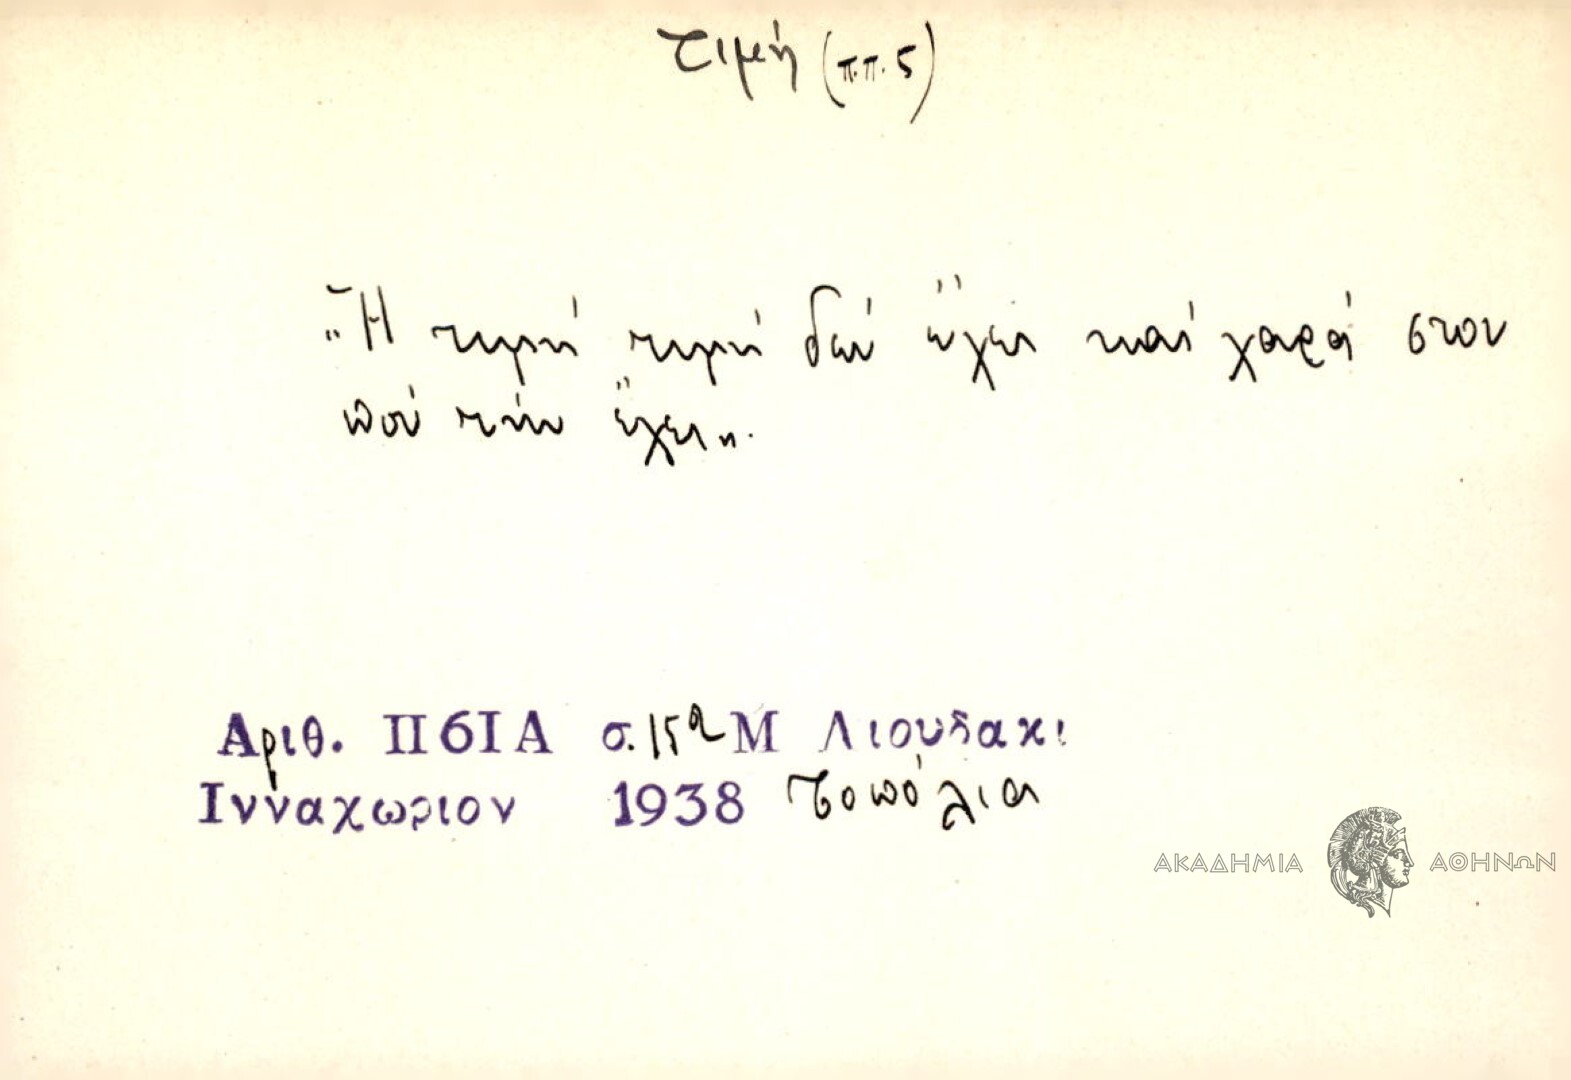 Τιμή (π.π. 5)
"Ἡ τιμή τιμή δέν ἔχει καί χαρά στον
πού τήν ἔχει".
Αριθ. Π61Α σ. 152 Μ Λιουδακι
Ινναχωριον 1938 Τοπόλια
ΑΚΑΔΗΜΙΑ ΑΘΗΝΩΝ